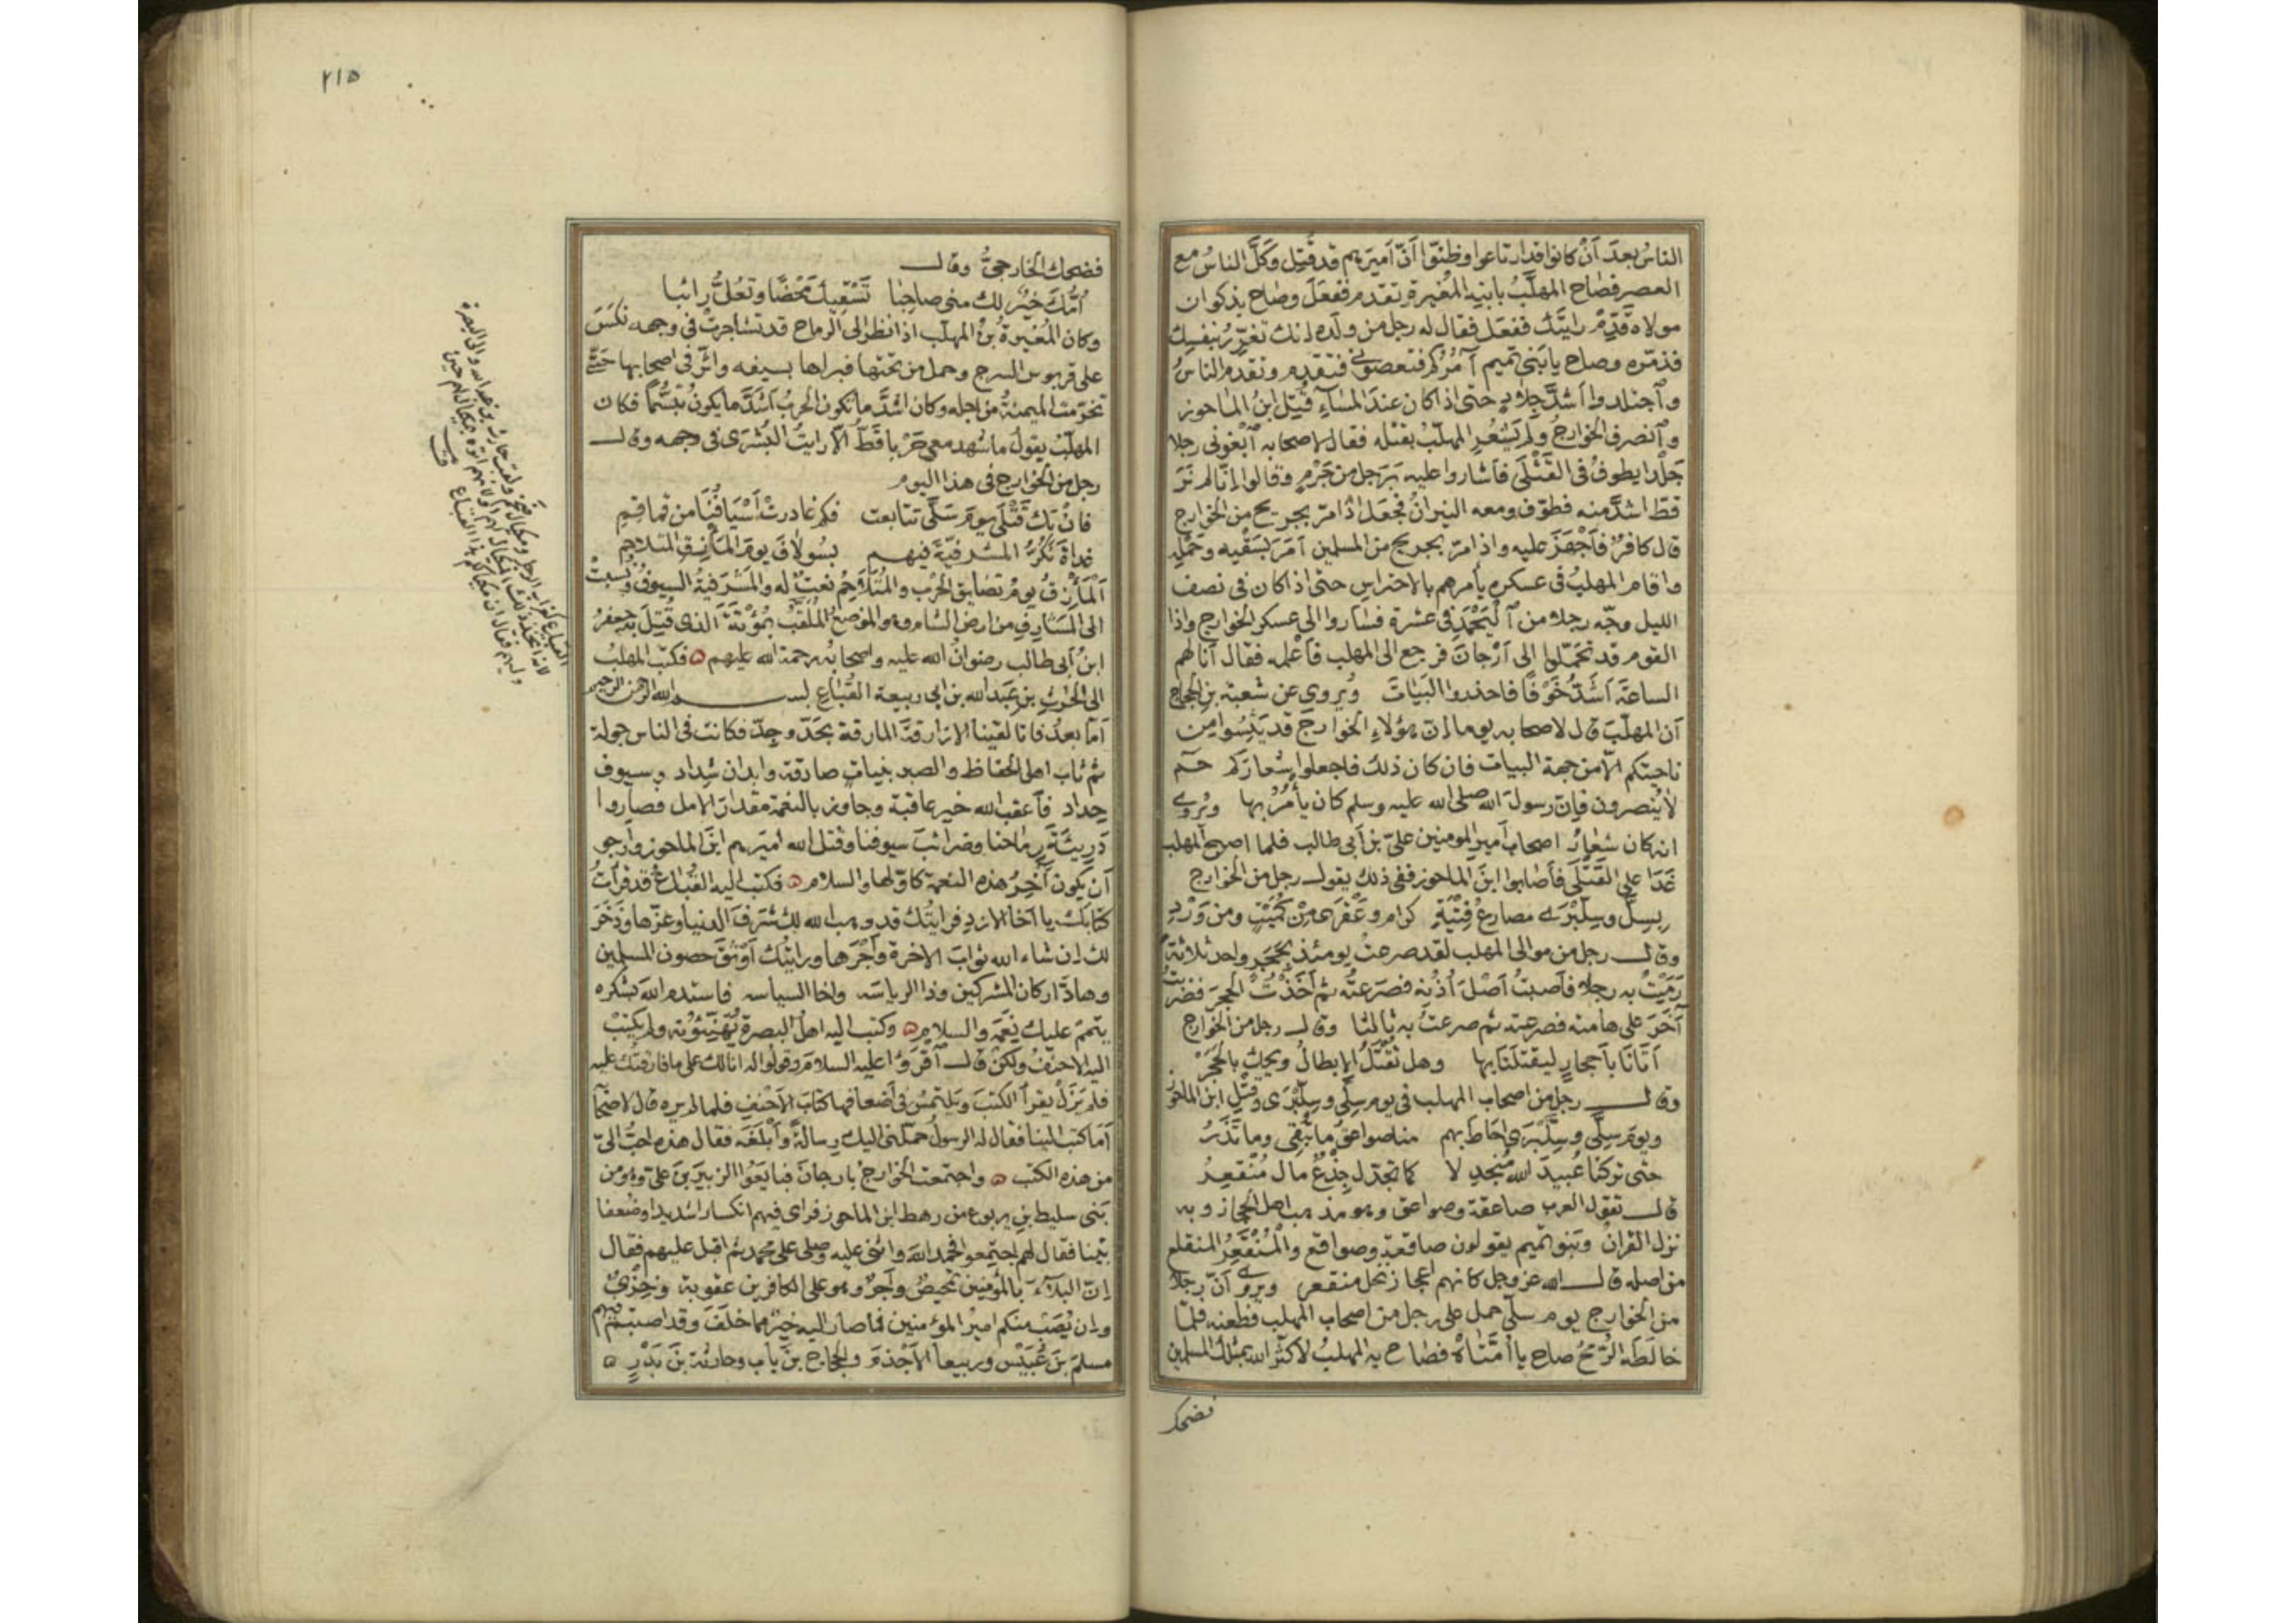 الناسُ بعدَ اَنْ كانوا قد ارتاعوا وظنّوا اَنّ اَميرَهم قد قُتِل وَكَلَّ الناسُ مع
العصر فصاح المهلَّبُ بابنِه المُغيرة تقدم ففعَلَ وصاح بذكوان
مولاه قَدِّمْ رايتَك ففعل فقال له رجل من ولده انك تغرِّرُ بنفسِك
فذمّره وصاح يا بَنى تميم آمُرُكم فتعصوننى فتقدم وتقدم الناسُ
وٱجتلدوا اَشدَّ جلادٍ حتى اذا كان عند المسآءِ قُتِلَ ابنُ الماحوز
وٱنصرف الخوارجُ ولم يَشعُرِ المهلّبُ بقتله فقال لاصحابه ٱبغونى رجلا
جَلْدا يطوفُ فى القَتْلَى فاشاروا عليه برَجل من جَرْمٍ وقالوا انّا لم نَرَ
قطّ اشدَّ منه فطوّف ومعه النيرانُ فجعل اذا مرّ بجريح من الخوارج
قال كافرٌ فاَجْهَزَ عليه واذا مرّ بجريح من المسلمين اَمَرَ بسَقْيِه وحَمْلِه
واقام المهلبُ فى عسكره يأمرهم بالاحتراس حتى اذا كان فى نصف
الليل وجّه رجلا من ٱليَحْمَد فى عشرة فساروا الى عسكر الخوارج واذا
القوم قد تحمّلوا الى اَرّجانَ فرجع الى المهلب فاَعلمه فقال اَنا لهم
الساعةَ اَشَدُّ خَوْفًا فاحذروا البَياتَ ويُروى عن شعبة بن الحجاج
اَن المهلّبَ قال لاصحابه يوما انّ هؤلاءِ الخوارجَ قد يَئِسُوا من
ناحيتكم الّا من جهة البيات فان كان ذلك فاجعلوا شعارَكم حٰم
لا يُنصرون فاِنّ رسولَ الله صلى الله عليه وسلم كان يأمُرُ بها ويُروى
انه كان شعارُ اصحابِ اَمير المومنين علىّ بن اَبى طالب فلما اصبح المهلب
غَدَا على القَتْلَى فاَصابوا ابنَ الماحوز ففى ذلك يقول رجل من الخوارج
بِسِلَّى وسِلِّبْرَى مصارعُ فِتْيَةٍ كرام وعَقْرَى مِنْ كُمَيْتٍ ومن وَرْدِ
وقال رجل من موالى المهلب لقد صرعتُ يومئذ بحَجَرٍ واحد ثلاثةً
رَمَيْتُ به رجلا فاَصبتُ اَصْلَ اُذُنِه فصَرَعتُه ثم اَخَذْتُ الحجرَ فضربتُ
آخَرَ على هامته فصرعته ثم صرعتُ به ثالثا وقال رجل من الخوارج
اَتَانَا بِاَحجارٍ ليقتلَنَا بها وهل تُقْتَلُ الابطالُ ويحك بالحَجَرْ
وقال رجل من اصحاب المهلب فى يوم سِلّى وسِلِّبْرَى وقَتْلِ ابن الماحوز
ويومَ سِلَّى وسِلِّبْرَى اَحَاطَ بهم منا صواعقُ ما تُبْقِى وما تَذَرُ
حتى تركنا عُبيدَ الله مُنجدِلا كما تجدّل جِذْعٌ مال مُنْقَعِرُ
قال تقول العرب صاعقة وصواعق وهو مذهب اهل الحجاز وبه
نزل القرانُ وبَنو تميم يقولون صاقعة وصواقع والْمُنْقَعِرُ المنقلع
من اصله قال الله عز وجل كانهم اعجاز نخل منقعر ويروى اَنّ رجلا
من الخوارج يوم سلّى حمل على رجل من اصحاب المهلب فطعنه فلمّا
خالَطَه الرُمحُ صاح يا اُمَّتَاهْ فصاح به المهلبُ لا كثّر الله بمثلك المسلمين
فضحك
٢١٥
فضحك الخارجىُّ وقال
اُمُّكَ خيْرٌ لك منى صاحِبا تَسْقِيكَ مَحْضًا وتَعُلُّ رائبا
وكان المُغيرةُ بنُ المهلّب اذا نظر الى الرماح قد تشاجرتْ فى وجهه نكَسَ
على قربوس السرج وحمل من تحتها فبراها بسيفه واَثّر فى اصحابها حَتَّى
تخرّمت الميمنةُ من اجله وكان اَشدَّ ما تكون الحربُ اَشدَّ ما يكون تبسُّمًا فكان
المهلّبُ يقولُ ما شهد معى حَرْبا قَطُّ الّا رايتُ البُشرَى فى وجهه وقال
رجل من الخوارج فى هذا اليوم
فانْ تك قَتْلَى يومَ سَلَّى تتابعت فكم غادرتْ اَسْيَافُنَا من قماقِمِ
غداةَ نَكُرُّ المشرفيّةَ فيهم بسُولافَ يومَ المَأزِقِ المتلاحِمِ
اَلْمَأزِقُ يومُ تضايق الحَرْب والمُتَلاَحِمُ نعتٌ له والمَشْرَفيةُ السيوفُ نُسِبتْ
الى المَشَارِفِ من ارض الشام وهو الموضعُ المُلَقَّبُ بمُؤْتَةَ الذى قُتِلَ به جعفرُ
ابنُ اَبى طالب رضوانُ الله عليه واصحابُه رحمة الله عليهم ۞ فكتب المهلبُ
الى الحارثِ بن عَبد الله بن ابى ربيعة القُبَاعِ بسم الله الرحمن الرحيم
اَمّا بعدُ فانا لقينا الازارقةَ المارقة بحَدّ وجِدّ فكانت فى الناس جولة
ثم ثاب اهل الحفاظ والصبر بنياتٍ صادقة وابدان شِداد وسيوف
حِداد فاَعقب الله خير عاقبة وجاوز بالنعمة مقدارَ الامل فصاروا
دَرِيئَةَ رِماحنا وضرائبَ سيوفنا وقتل الله اميرَهم ابنَ الماحوز واَرجو
اَن يكون آخِرُ هذه النعمة كاوّلها والسلام ۞ فكتب اليه القُبَاعُ قد قراتُ
كتابَك يا اَخا الازدِ فرايتُك قد وهب الله لك شَرَفَ الدنيا وعزّها وذَخَرَ
لك ان شاء الله ثوابَ الاخرة واَجْرَها ورايتُك اَوْثَقَ حصونِ المسلمين
وهادَّ اركان المشركين وذا الرياسة واخا السياسة فاستدم الله بشكره
يتممْ عليك نِعَمَه والسلام ۞ وكتب اليه اهلُ البصرة يُهَنِّئُونه ولم يكتبْ
اليه الاحنفُ ولكن قال اَقْرَؤا عليه السلام وقولوا له انا لك على ما فارقتُك عليه
فلم يَزَلْ يقرأ الكتبَ ويلتمسُ فى اَضعافها كتابَ الاَحنفِ فلما لم يره قال لاصحابه
اَمَا كتب الينا فقال له الرسولُ حَمّلنى اليك رِسالةً وَاَبْلَغَه فقال هذه احبُّ الىّ
من هذه الكتب ۞ واجتمعت الخوارجُ بارجانَ فبايَعُوا الزبيرَ بنَ علىّ وهو من
بَنى سليط بنِ يربوع من رهط ابن الماحوز فراى فيهم انكسارا شديدا وضُعفا
بيّنا فقال لهم اجتمعوا فحمد اللهَ واثنى عليه وصلى على محمد ثم اقبل عليهم فقال
اِنّ البلآءَ بالمؤمنين تمحيصٌ واَجرٌ وهو على الكافرين عقوبة وخِزْىٌ
وان يُصَبْ منكم اميرُ المؤمنين فما صار اليه خيرٌ مما خلّفَ وقد اصبتم فيهم
مسلمَ بنَ عُبَيْس وربيعا الاَجْذمَ والحجاجَ بنَ باب وحارثةَ بنَ بَدْرٍ ۞